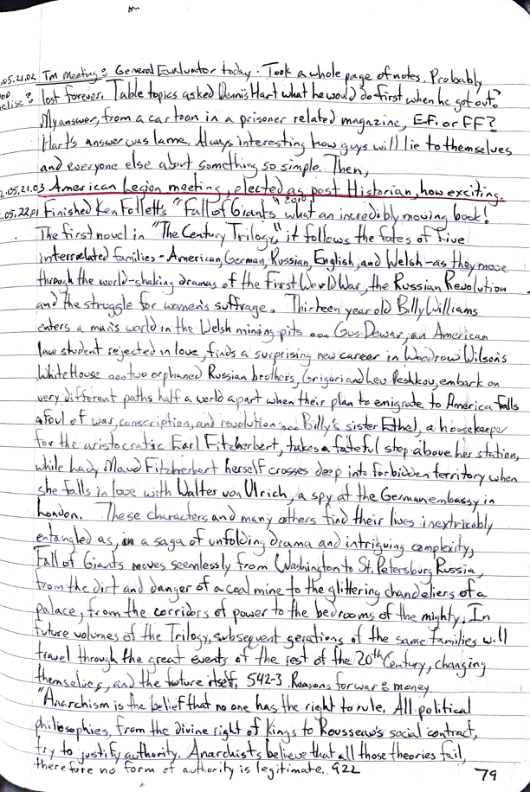 .05.21.02 TM meeting: General Evaluator today. Took a whole page of notes. Probably
lost forever. Table topics asked Dennis Hart what he would do first when he got out?
My answer, from a cartoon in a prisoner related magazine, E.F. or FF?
Hart's answer was lame. Always interesting how guys will lie to themselves
and everyone else about something so simple. Then,
2.05.21.03 American Legion meeting, elected as post Historian, how exciting.
.05.22.01 Finished Ken Follett's "Fall of Giants" 2010 what an incredibly moving book!
The first novel in "The Century Trilogy," it follows the fates of five
interrelated families - American, German, Russian, English, and Welsh - as they move
through the world-shaking dramas of the First World War, the Russian Revolution
and the struggle for women's suffrage. Thirteen year old Billy Williams
enters a man's world in the Welsh mining pits ... Gus Dewar, an American
law student rejected in love, finds a surprising new career in Woodrow Wilson's
White House ... two orphaned Russian brothers, Grigori and Lev Peshkov, embark on
very different paths half a world apart when their plan to emigrate to America falls
afoul of war, conscription, and revolution ... Billy's sister Ethel, a housekeeper
for the aristocratic Earl Fitzherbert, takes a fateful step above her station,
while Lady Maud Fitzherbert herself crosses deep into forbidden territory when
she falls in love with Walter von Ulrich, a spy at the German embassy in
London. These characters and many others find their lives inextricably
entangled as, in a saga of unfolding drama and intriguing complexity,
Fall of Giants moves seemlessly from Washington to St. Petersburg Russia,
from the dirt and danger of a coal mine to the glittering chandeliers of a
palace, from the corridors of power to the bedrooms of the mighty. In
future volumes of the Trilogy, subsequent gerations of the same families will
travel through the great events of the rest of the 20th Century, changing
themselves, and the future itself. 542-3 Reasons for war: money
"Anarchism is the belief that no one has the right to rule. All political
philosophies, from the divine right of Kings to Rousseau's social contract,
try to justify authority. Anarchists believe that all those theories fail,
therefore no form of authority is legitimate. 922
79